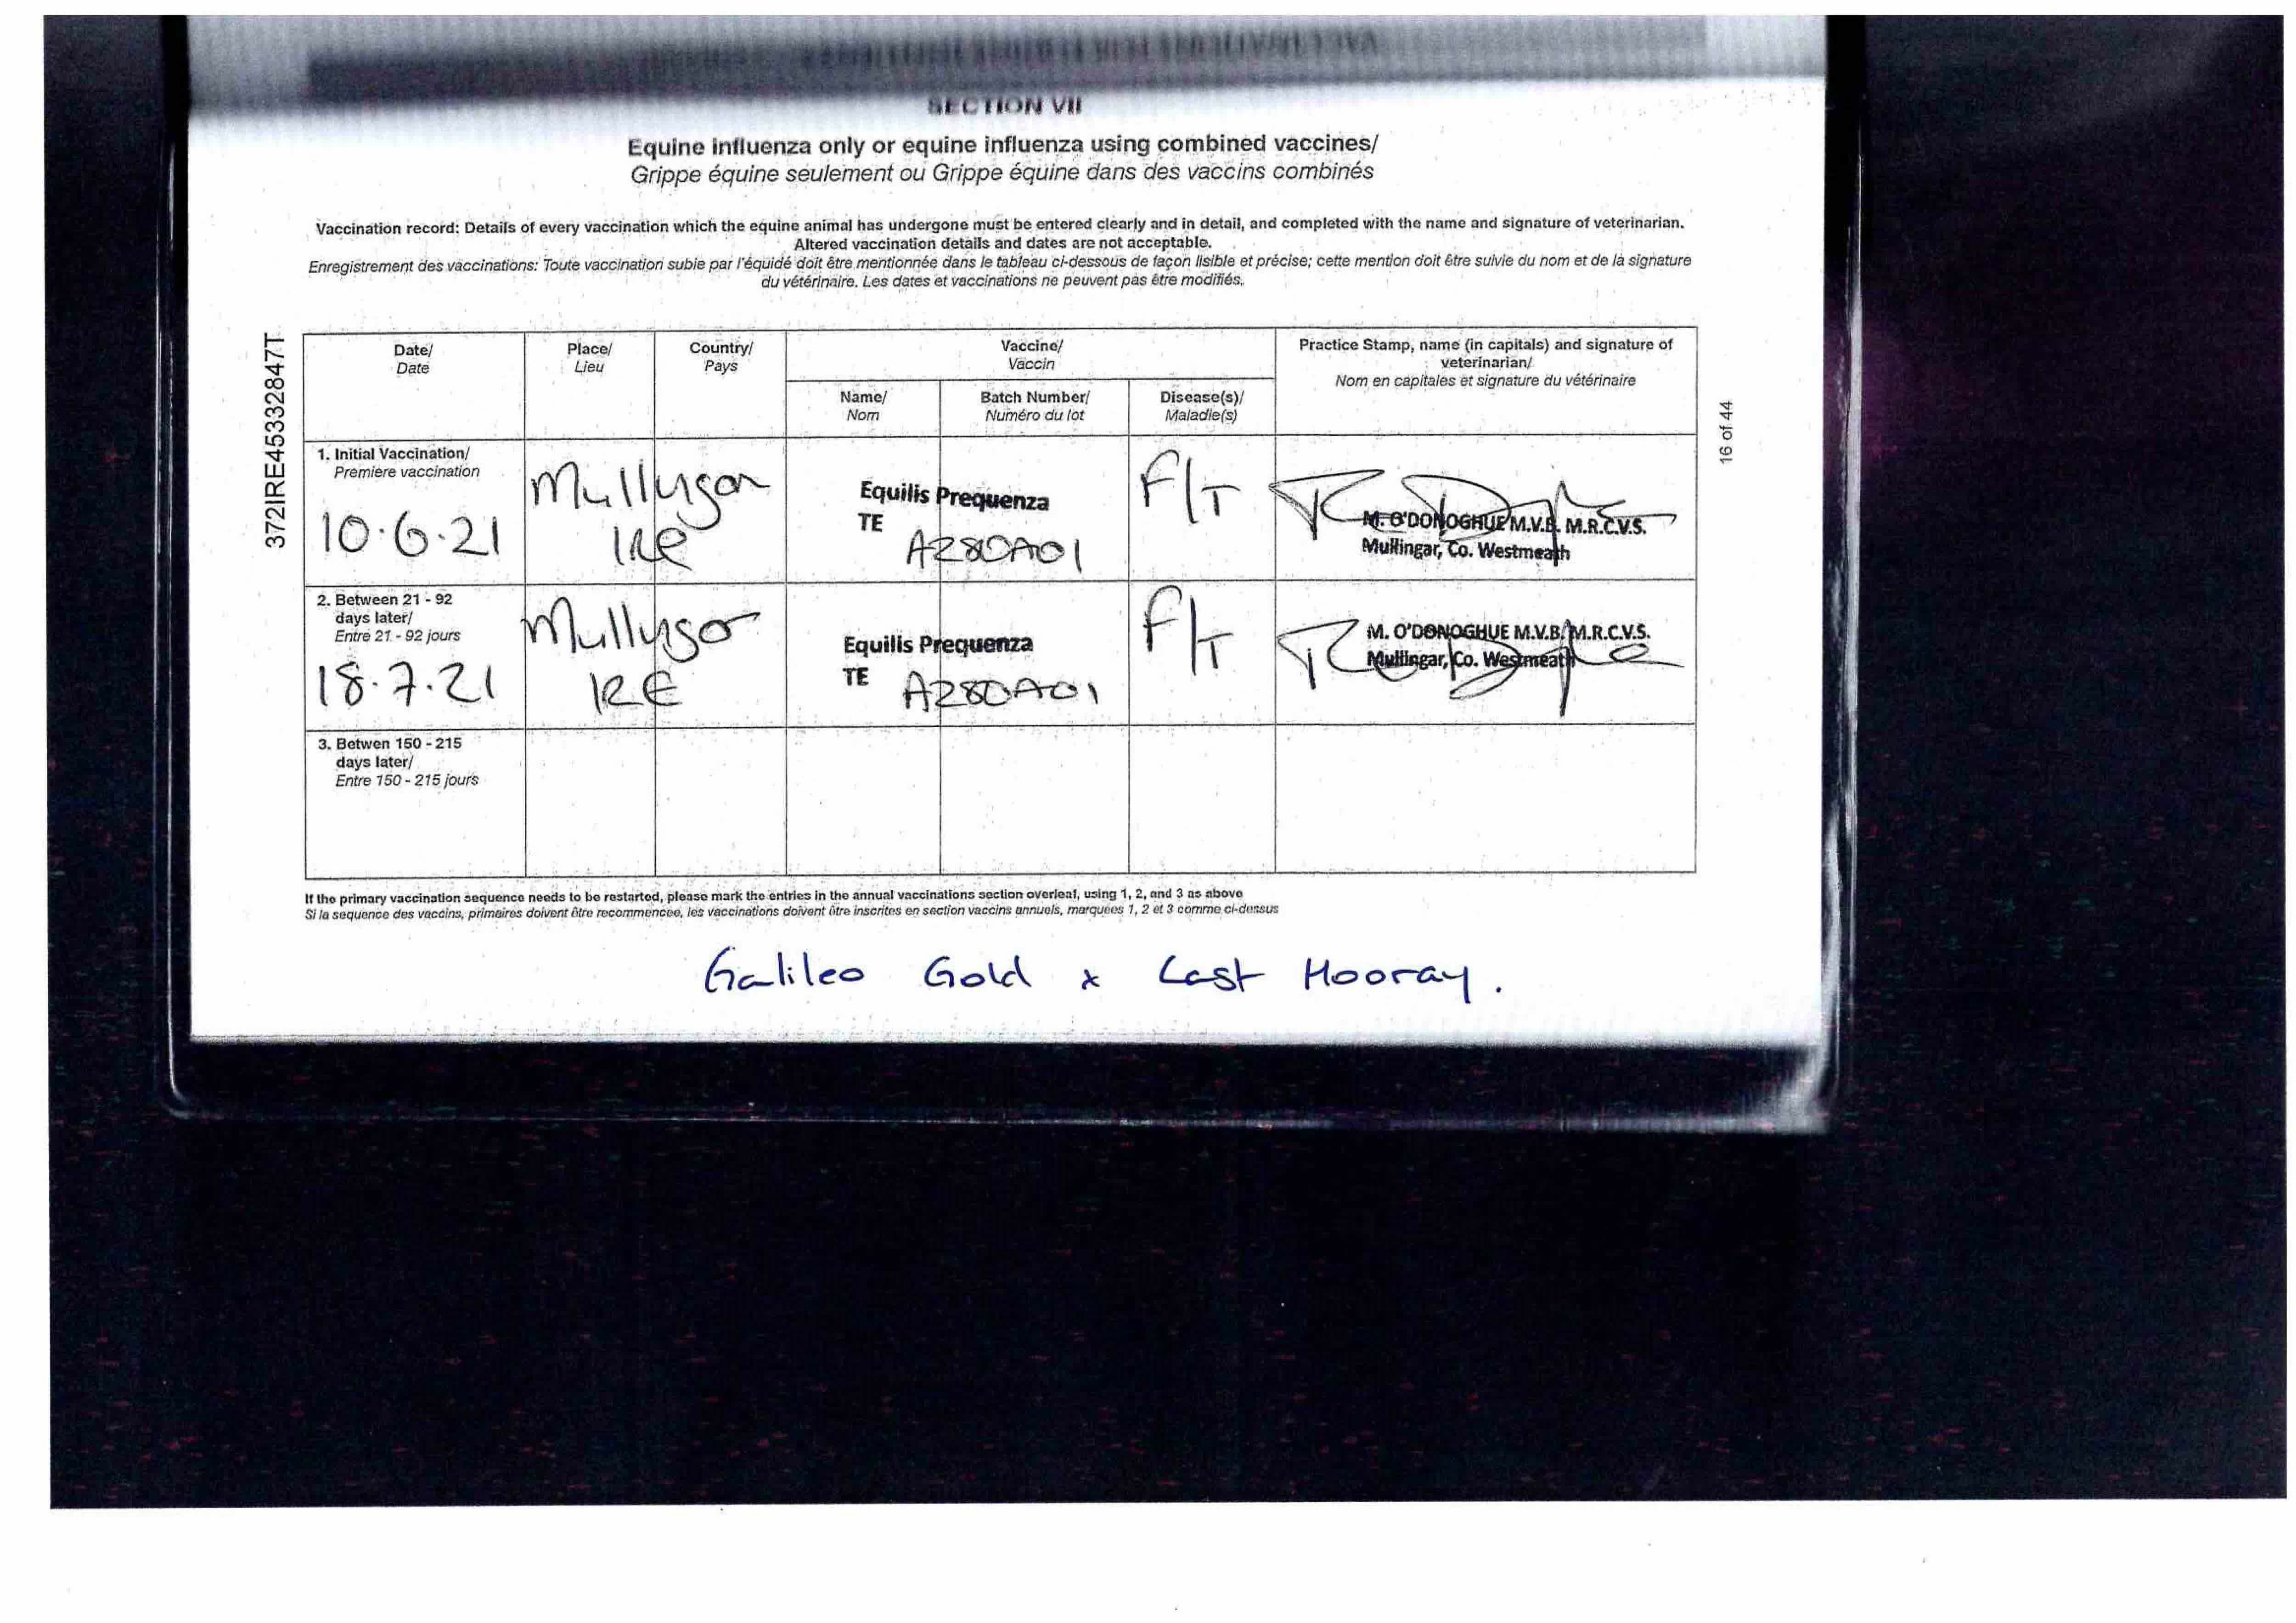 SECTION VII
Equine influenza only or equine influenza using combined vaccines/
Grippe équine seulement ou Grippe équine dans des vaccins combinés
Vaccination record: Details of every vaccination which the equine animal has undergone must be entered clearly and in detail, and completed with the name and signature of veterinarian.
Altered vaccination details and dates are not acceptable.
Enregistrement des vaccinations: Toute vaccination subie par l'équidé doit être mentionnée dans le tableau ci-dessous de façon lisible et précise; cette mention doit être suivie du nom et de la signature
du vétérinaire. Les dates et vaccinations ne peuvent pas être modifiés.
372IRE45332847T
16 of 44
Date/
Date
Place/
Lieu
Country/
Pays
Vaccine/
Vaccin
Name/
Nom
Batch Number/
Numéro du lot
Disease(s)/
Maladie(s)
Practice Stamp, name (in capitals) and signature of
veterinarian/
Nom en capitales et signature du vétérinaire
1. Initial Vaccination/
Premiere vaccination
10.6.21
IRE
Equilis Prequenza
TE
A280A01
F/T
M. O'DONOGHUE M.V.B. M.R.C.V.S.
Mullingar, Co. Westmeath
2. Between 21 - 92
days later/
Entre 21 - 92 jours
18.7.21
IRE
Equilis Prequenza
TE
A280A01
F/T
M. O'DONOGHUE M.V.B. M.R.C.V.S.
Mullingar, Co. Westmeath
3. Betwen 150 - 215
days later/
Entre 150 - 215 jours
If the primary vaccination sequence needs to be restarted, please mark the entries in the annual vaccinations section overleaf, using 1, 2, and 3 as above
Si la sequence des vaccins, primaires doivent être recommencee, les vaccinations doivent être inscrites en section vaccins annuels, marquées 1, 2 et 3 comme ci-dessus
Galileo Gold x Last Hooray.